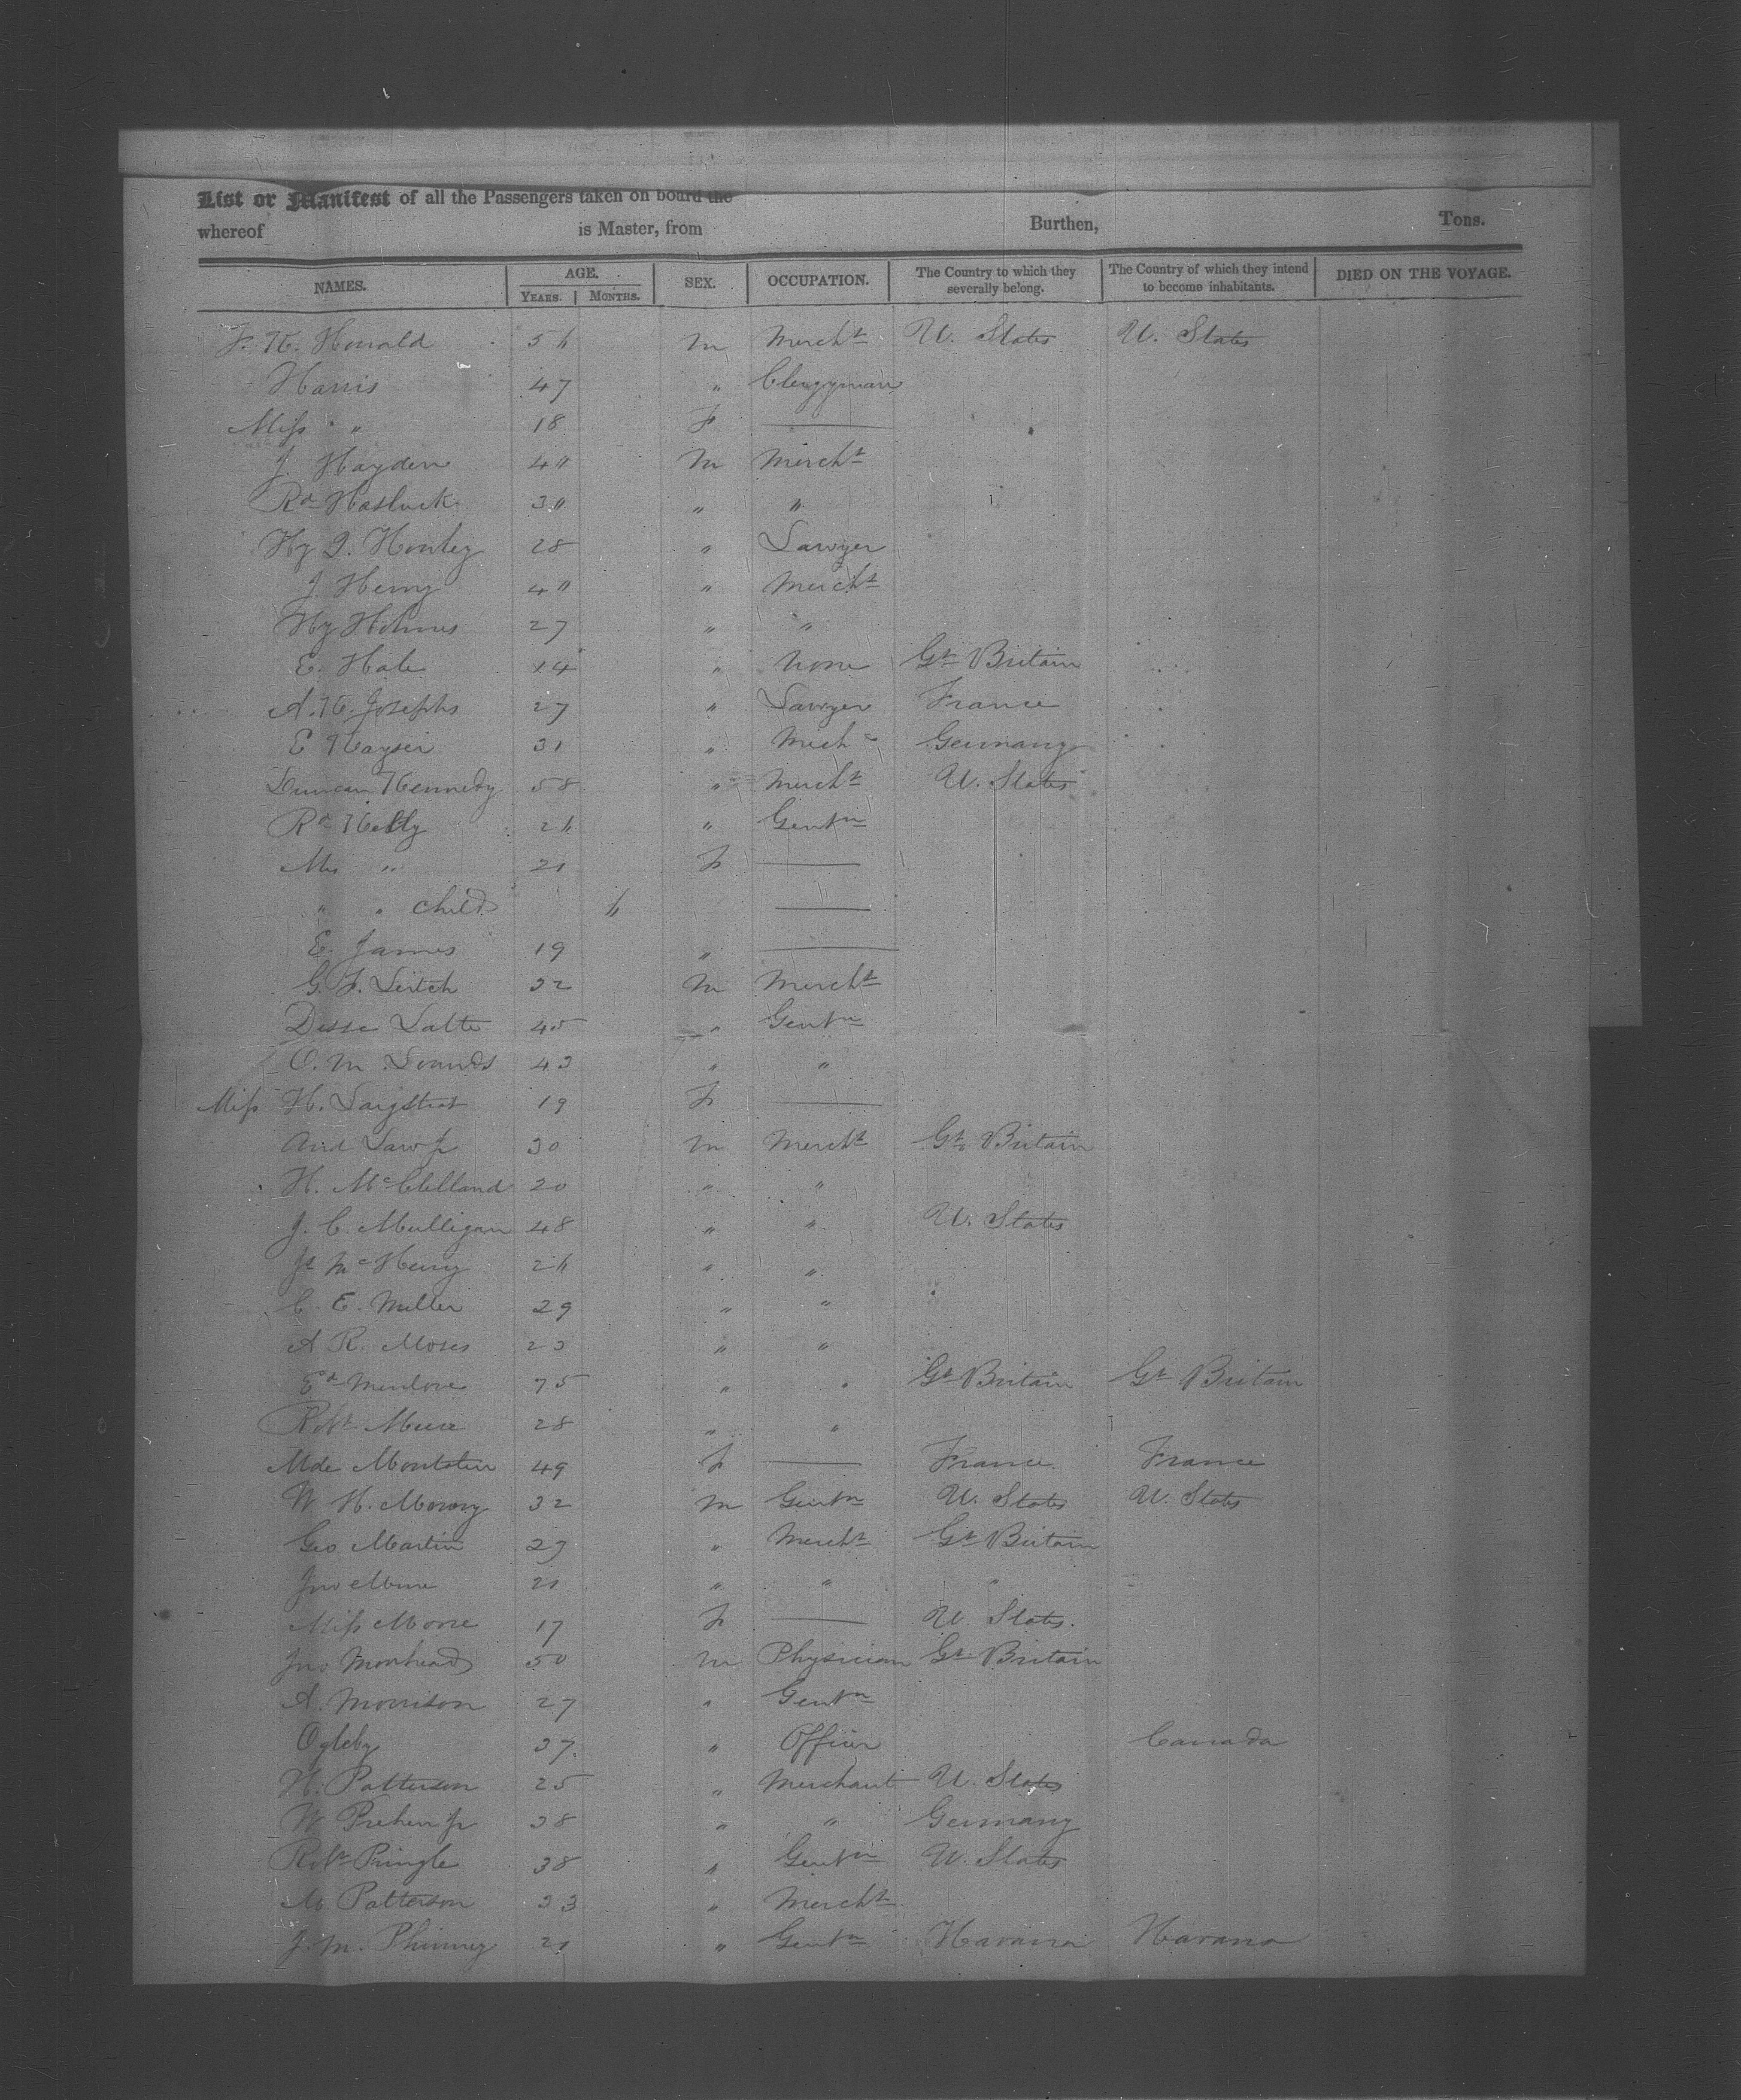 List or Manifest of all the Passengers taken on board the
whereof is Master, from Burthen, Tons.
NAMES. AGE. SEX. OCCUPATION. The Country to which they severally belong. The Country of which they intend to become inhabitants. DIED ON THE VOYAGE.
YEARS. MONTHS.
m Mercht U. States U. States
Harris 47 " Clergyman
Miss " 18 F
J. Hayden m Mercht
Rd Hasluck " "
28 " Lawyer
J. Henry " Mercht
Hy Holmes 27 " "
E. Hale 14 " None Gt Britain
A. K. Josephs 27 " Lawyer France
E Kayser 31 " Germany
Duncan Kennedy 58 " Mercht U. States
Rd Kelly " Gentn
Mrs " 21 F
" " child
E. James 19 "
G. F. Leitch 32 m Mercht
45 " Gentn
O. M. 43 " "
Miss H. 19 F
And Law Jr 30 m Mercht Gt Britain
H. McClelland 20 " "
J. C. Mulligan 48 " " U. States
Js McHenry " "
C. E. Miller 29 " "
A R. Moses 23 " "
Ed Menlove 75 " " Gt Britain Gt Britain
Robt 28 " "
Mde 49 F France France
W. H. 32 m Gentn U. States U. States
Geo Martin 27 " Mercht Gt Britain
Jno 21 " " "
Miss 17 F U. States.
Jno 50 m Physician Gt Britain
A. Morrison 27 " Gentn
Ogleby 37. " Officer Canada
H. Patterson 25 " Merchant U. States
W 38 " " Germany
Robt Pringle 38 " Gentn U. States
M Patterson 33 " Mercht
J. M. Phinney 21 " Gentn Havana Havana